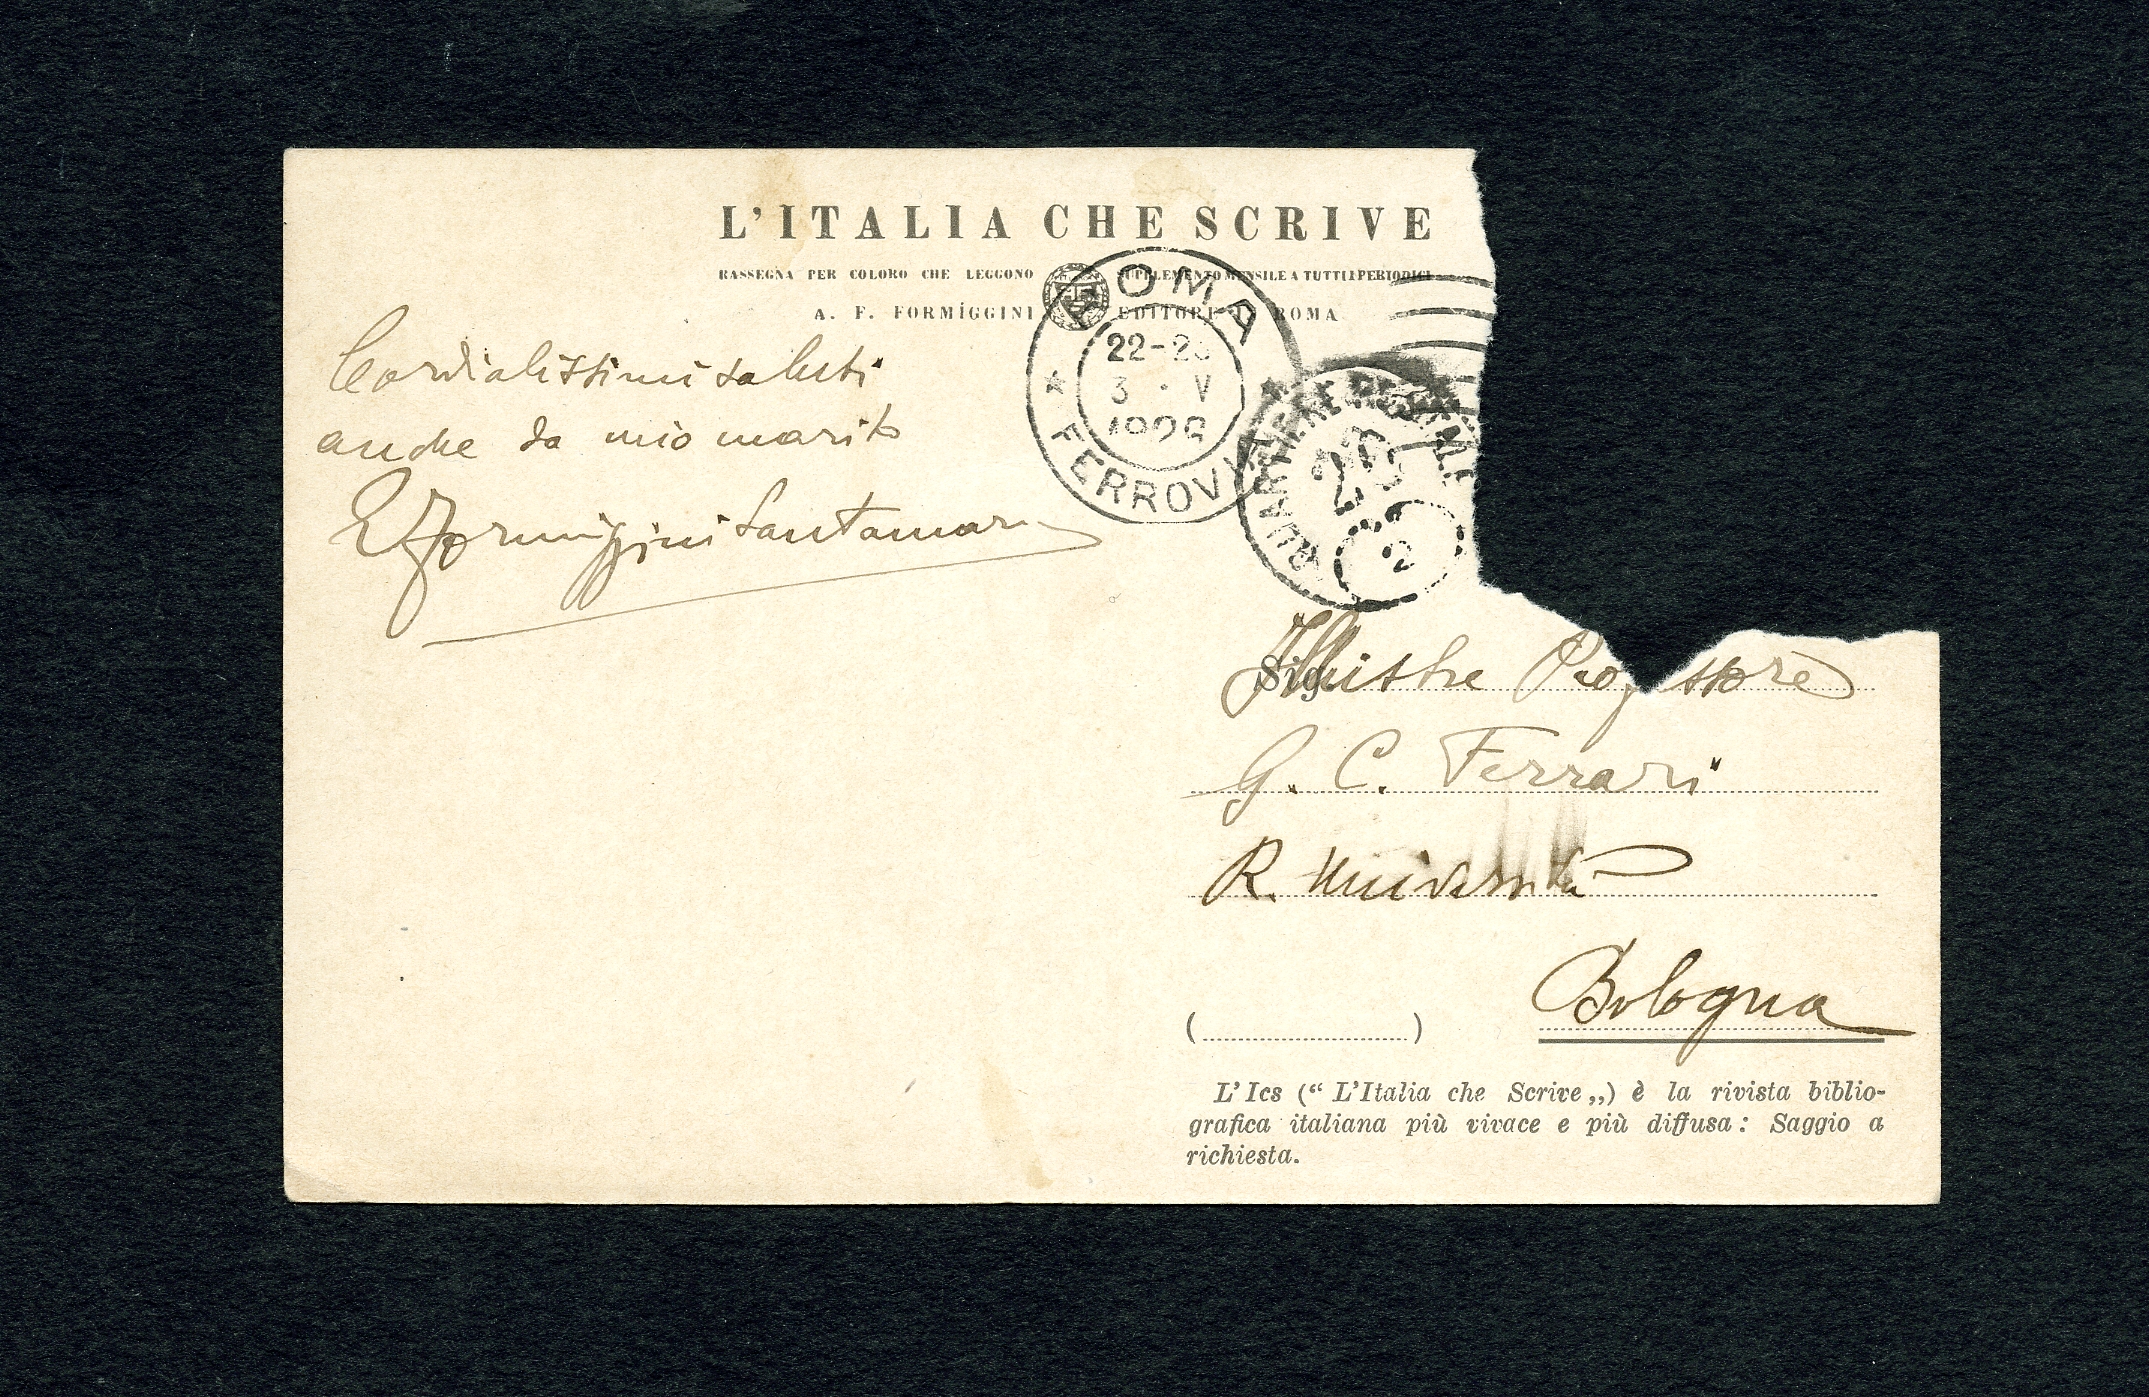 L'ITALIA CHE SCRIVE
RASSEGNA PER COLORO CHE LEGGONO SUPPLEMENTO MENSILE A TUTTI I PERIODICI
A. F. FORMÍGGINI EDITORE IN ROMA
ROMA
22-23
3 · V
FERROVIA
2
Cordialissimi saluti
anche da mio marito
E Formiggini Santamaria
Sig.
Illustre Professore
G. C. Ferrari
R. Università
Bologna
( )
L'Ics (“ L'Italia che Scrive „) è la rivista biblio-
grafica italiana più vivace e più diffusa: Saggio a
richiesta.